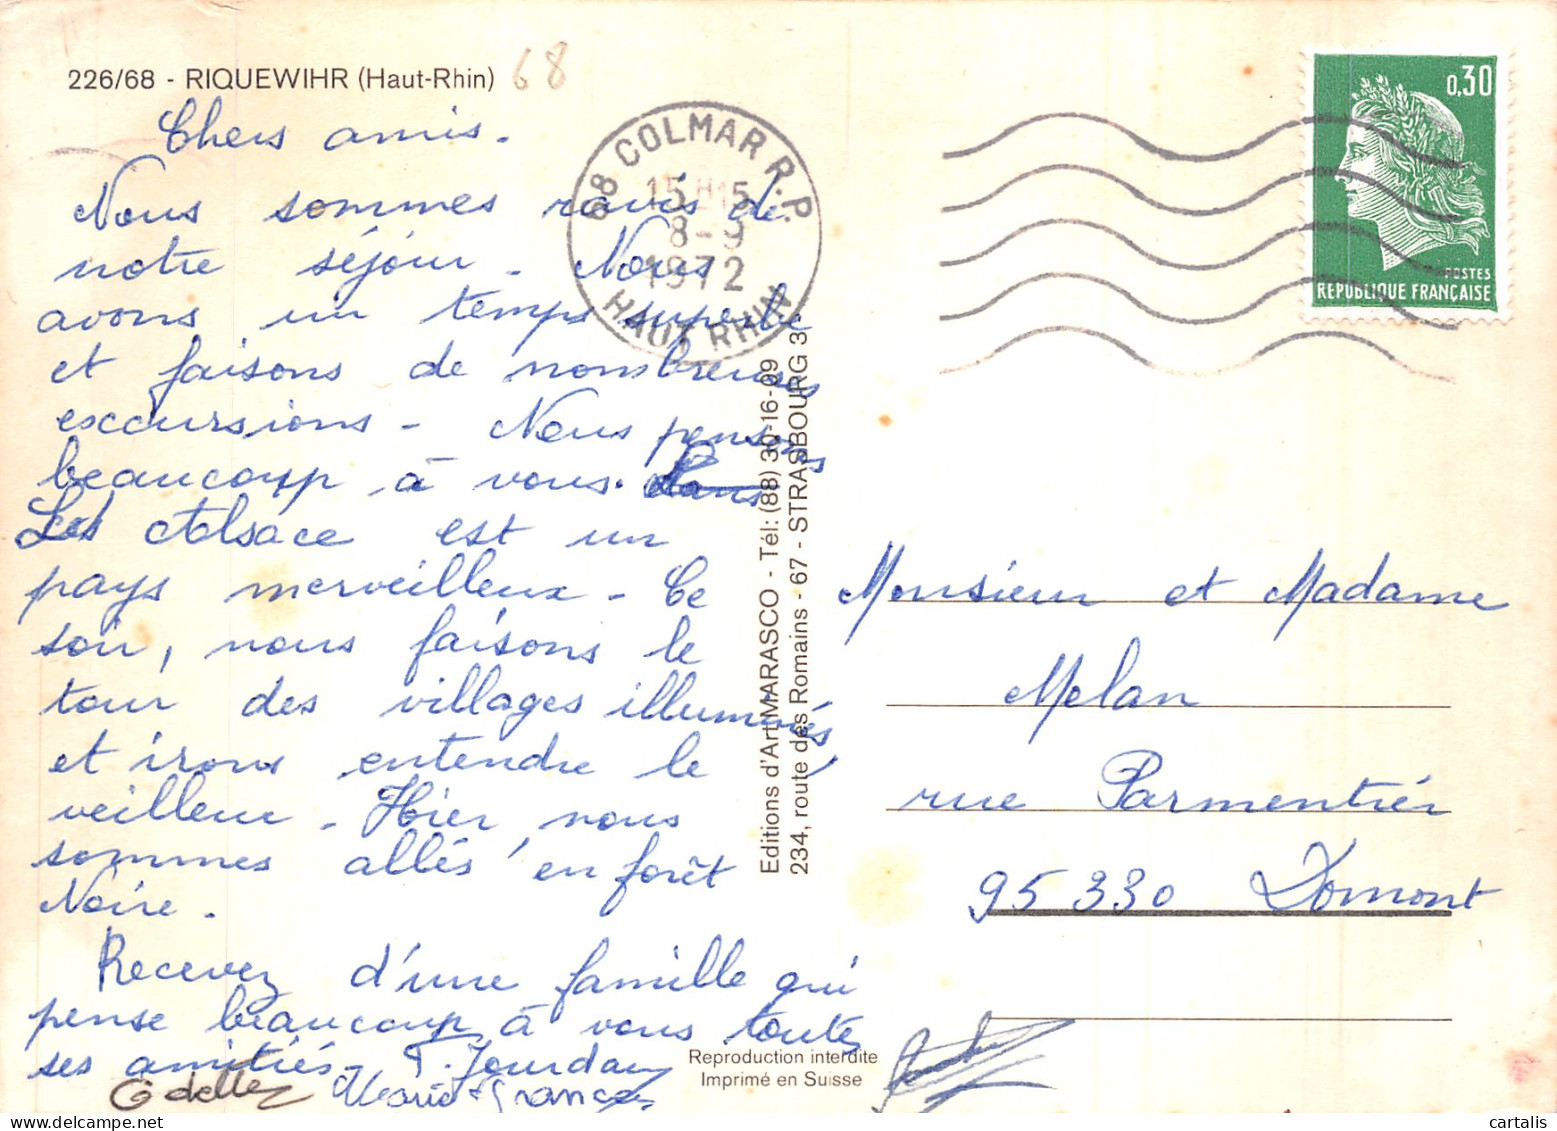 226/68 - RIQUEWIHR (Haut-Rhin)
68
Chers amis.
Nous sommes ravis de
notre séjour. Nous
avons un temps superbe
et faisons de nombreuses
excursions - Nous pensons
beaucoup à vous. dans
Les Alsace est un
pays merveilleux - Ce
soir, nous faisons le
tour des villages illuminés
et irons entendre le
veilleur. Hier, nous
sommes allés en forêt
Noire.
Recevez d'une famille qui
pense beaucoup à vous toutes
ses amitiés.
Jourdan
Odette
Marie-France
68 COLMAR R.P.
15H15
8-9
1972
HAUT RHIN
0,30
POSTES
REPUBLIQUE FRANÇAISE
Editions d'Art MARASCO - Tél: (88) 30-16-09
234, route des Romains - 67 - STRASBOURG 3
Monsieur et Madame
Melan
rue Parmentier
95330 Domont
Reproduction interdite
Imprimé en Suisse
cartalis